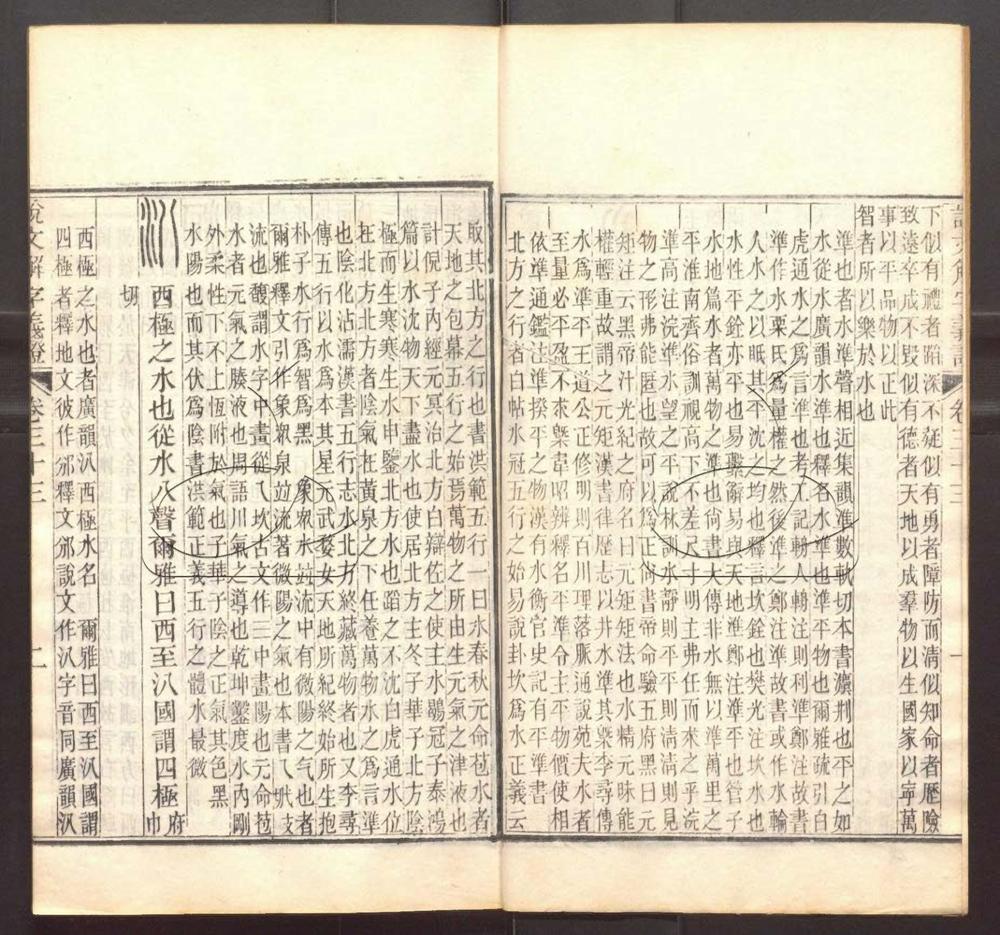 下似有禮者蹈深不疑似有勇者障防而清似知命者歷險
致遠卒成不毀似有德者天地以成羣物以生國家以寧萬
事以平品物以正此
智者所以樂於水也
準也者水準聲相近集韻準數軌切本書灋荆也平之如
水從水廣韻水準也釋名水準也準平物也爾雅疏引白
虎通水之爲言準也考工記輈人輈注則利準鄭注故書
準作水㮚氏爲量權之然後準之鄭注準故書或作水輪
人水之以眡其平沈之均也釋言坎銓也樊光注坎水也
水性平銓亦平也易繫辭易與天地準鄭注準平也管子
水地篇水者萬物之準也尙書大傳非水無以準萬里之
平淮南齊俗訓視高下不差尺寸明主弗任而求之乎浣
準高注浣準水望之平說林訓水靜則平平則淸淸則見
物之形弗能匿也故可以爲正尙書帝命驗五府黑曰元
矩注云黑帝汁光紀之府名曰元矩矩法也水精元昧能
權輕重故謂之元矩漢書律歷志以井水準其槩李尋傳
水爲準平王道公正修明則百川理落脈通說苑夫水者
至量必平盈不求槩韋昭辨釋名平準令主平物價使相
依準通鑑注準揆平之物漢有水衡官史記有平準書
北方之行者白帖水冠五行之始易說卦坎爲水正義云
說文解字義證 卷三十三 一
取其北方之行也書洪範五行一曰水春秋元命苞水者
天地之包幕五行之始焉萬物之所由生元氣之津液也
計倪子內經元冥治北方白辯佐之使主水鶡冠子泰鴻
篇以水沈物天下盡水也使居北方主冬子華子北方陰
極而生寒寒生水申鑒北方水也蹈之不沈白虎通水位
在北方北方者陰氣在黃泉之下任養萬物水之爲言準
也陰化沾濡漢書五行志水北方終藏萬物者也又李尋
傳五行以水爲本其星元武婺女天地所紀終始所生抱
朴子水行爲智爲黑 象衆水竝流中有微陽之气也者
爾雅釋文引作象衆泉竝流著微陽之气也本書㇏㽱㪅
流也馥謂水字中畫從㇏坎古文作三中畫陽也元命苞
水者元氣之腠液也周語川氣之導也乾坤鑿度水內剛
外柔性下不上恆附於氣也子華子陰之正氣其色黑
水陽也而其伏爲陰書洪範正義五行之體水最微
汃 西極之水也從水八聲爾雅曰西至汃國謂四極府巾
切
西極之水也者廣韻汃西極水名 爾雅曰西至汃國謂
四極者釋地文彼作邠釋文邠說文作汃字音同廣韻汃
說文解字義證 卷三十三 二